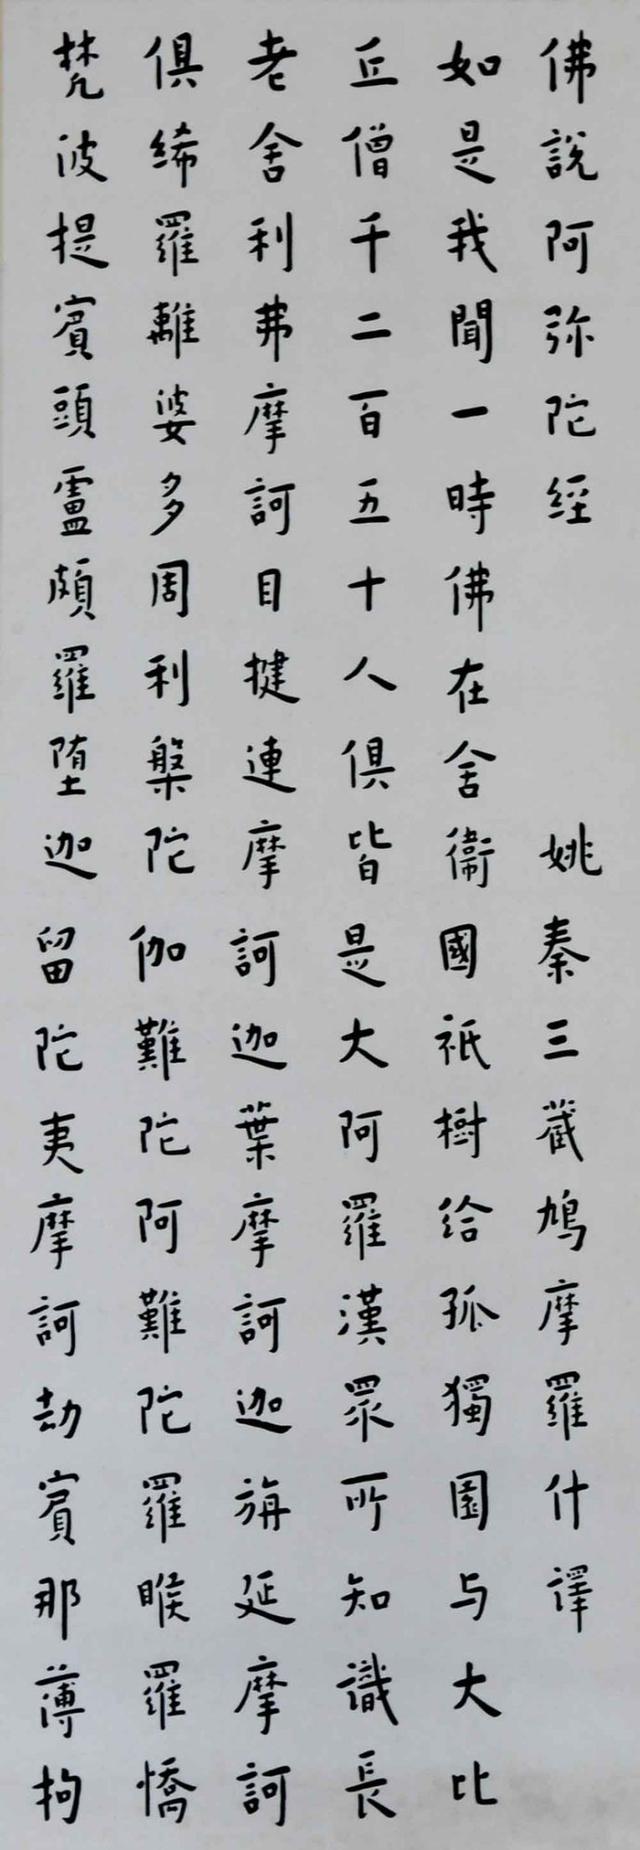 佛說阿弥陀經 姚秦三藏鳩摩羅什譯
如是我聞一時佛在舍衛國祇樹給孤獨園与大比
丘僧千二百五十人俱皆是大阿羅漢眾所知識長
老舍利弗摩訶目揵連摩訶迦葉摩訶迦旃延摩訶
俱絺羅離婆多周利槃陀伽難陀阿難陀羅睺羅憍
梵波提賓頭盧頗羅堕迦留陀夷摩訶劫賓那薄拘